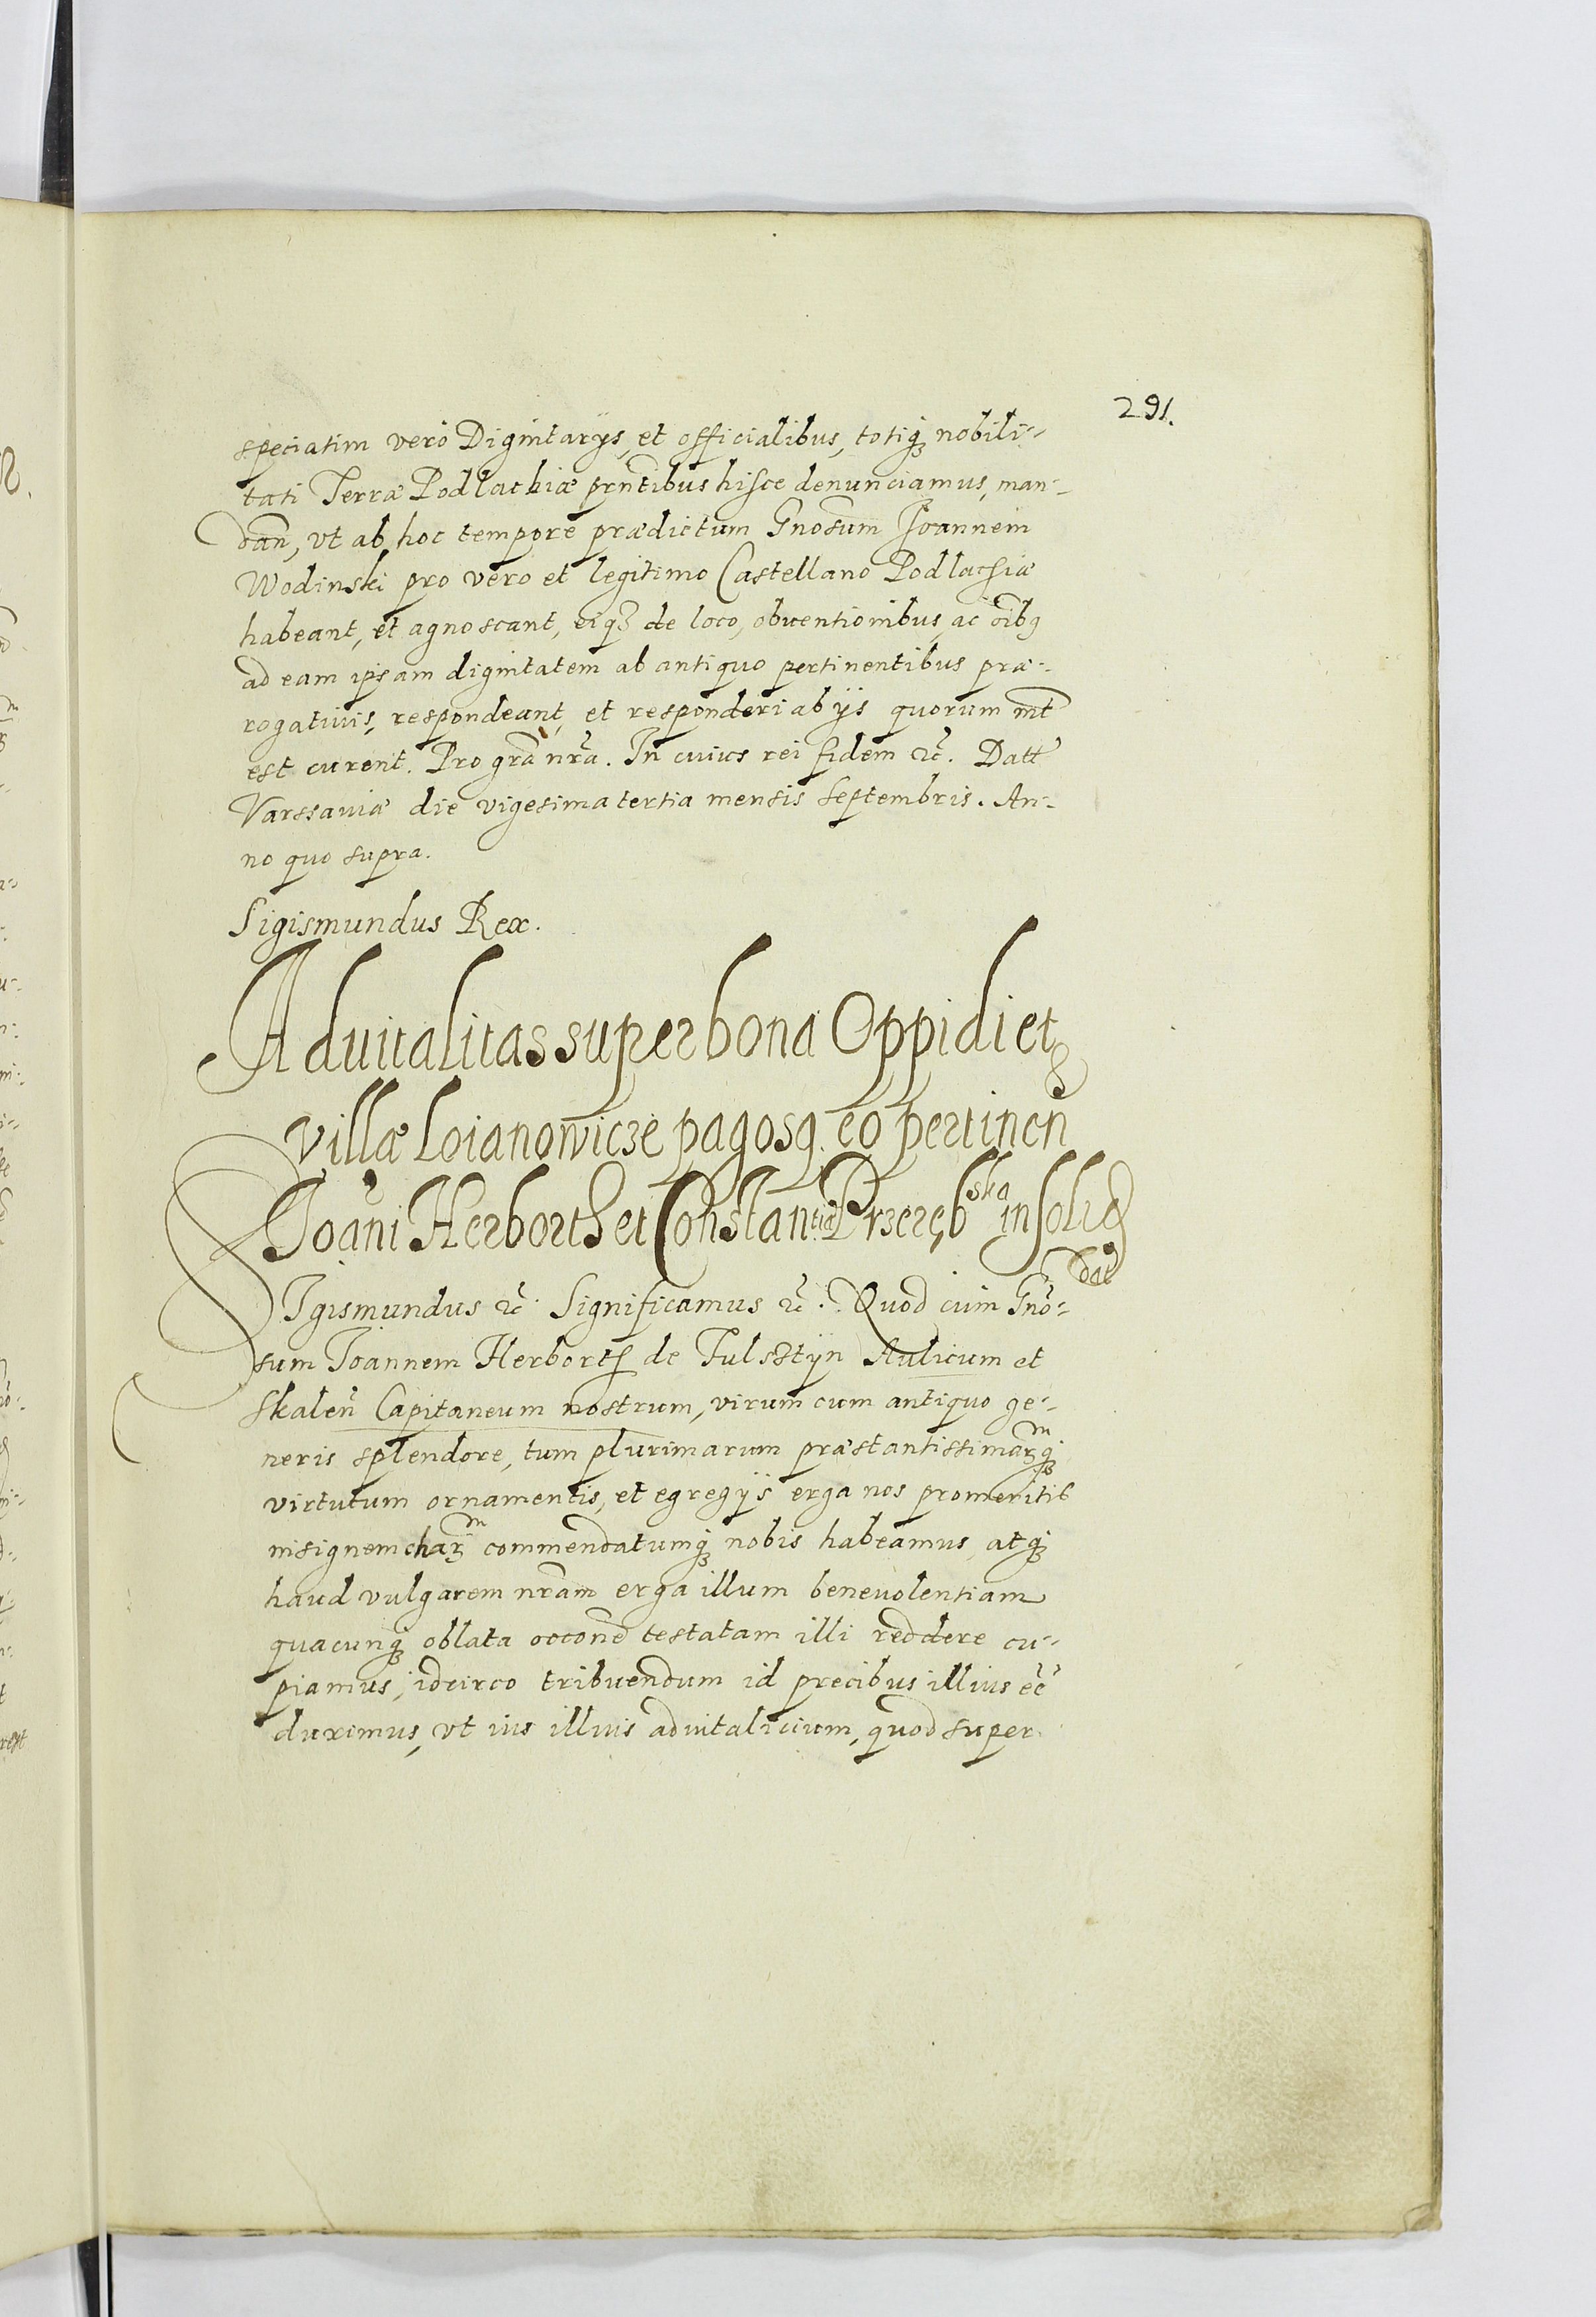 291.
speciatim vero Dignitarijs, et officialibus, totiq₃ nobili-
tati Terræ Podlachiæ prñtibus hisce denunciamus, man-
dañ, vt ab hoc tempore prædictum Gnosum Joannem
Wodinski pro vero et legitimo Castellano Podlachiæ
habeant, et agnoscant, eiq₃ de loco, obuentionibus, ac oĩbꝯ
ad eam ipsam dignitatem ab antiquo pertinentibus præ-
rogatiuis, respondeant, et responderi ab ijs quorum int̃
est curent. Pro grã nrã. In cuius rei fidem ꝛc̃. Datt
Varssauiæ die vigesima tertia mensis Septembris. An-
no quo supra.
Sigismundus Rex.
Aduitalitas super bona Oppidi et
villæ Loianowicze pagosq. eo pertinen
Joãni Herborth et Constantiæ Przerębska in solid
dat
Sigismundus ꝛc̃. Significamus ꝛc̃. Quod cum Gno-
sum Joannem Herborth de Fulsztÿn Aulicum et
Skaleñ Capitaneum nostrum, virum cum antiquo ge-
neris splendore, tum plurimarum præstantissimarᵐq₃
virtutum ornamentis, et egregijs erga nos promeritis
insignem charᵐ commendatumq₃ nobis habeamus, atq₃
haud vulgarem nrãm erga illum beneuolentiam
quacunq₃ oblata occõne testatam illi reddere cu-
piamus, idcirco tribuendum id precibus illius eẽ
duximus, vt ius illius aduitalicium, quod super